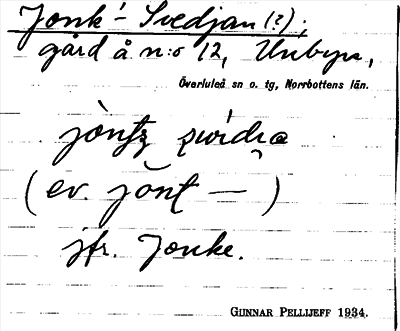 Jonk-Svedjan (?);
gård å n:o 12, Unbyn,
Överluleå sn o. tg, Norrbottens län.
(ev. jönt — )
jfr. Jonke.
GUNNAR PELLIJEFF 1934.